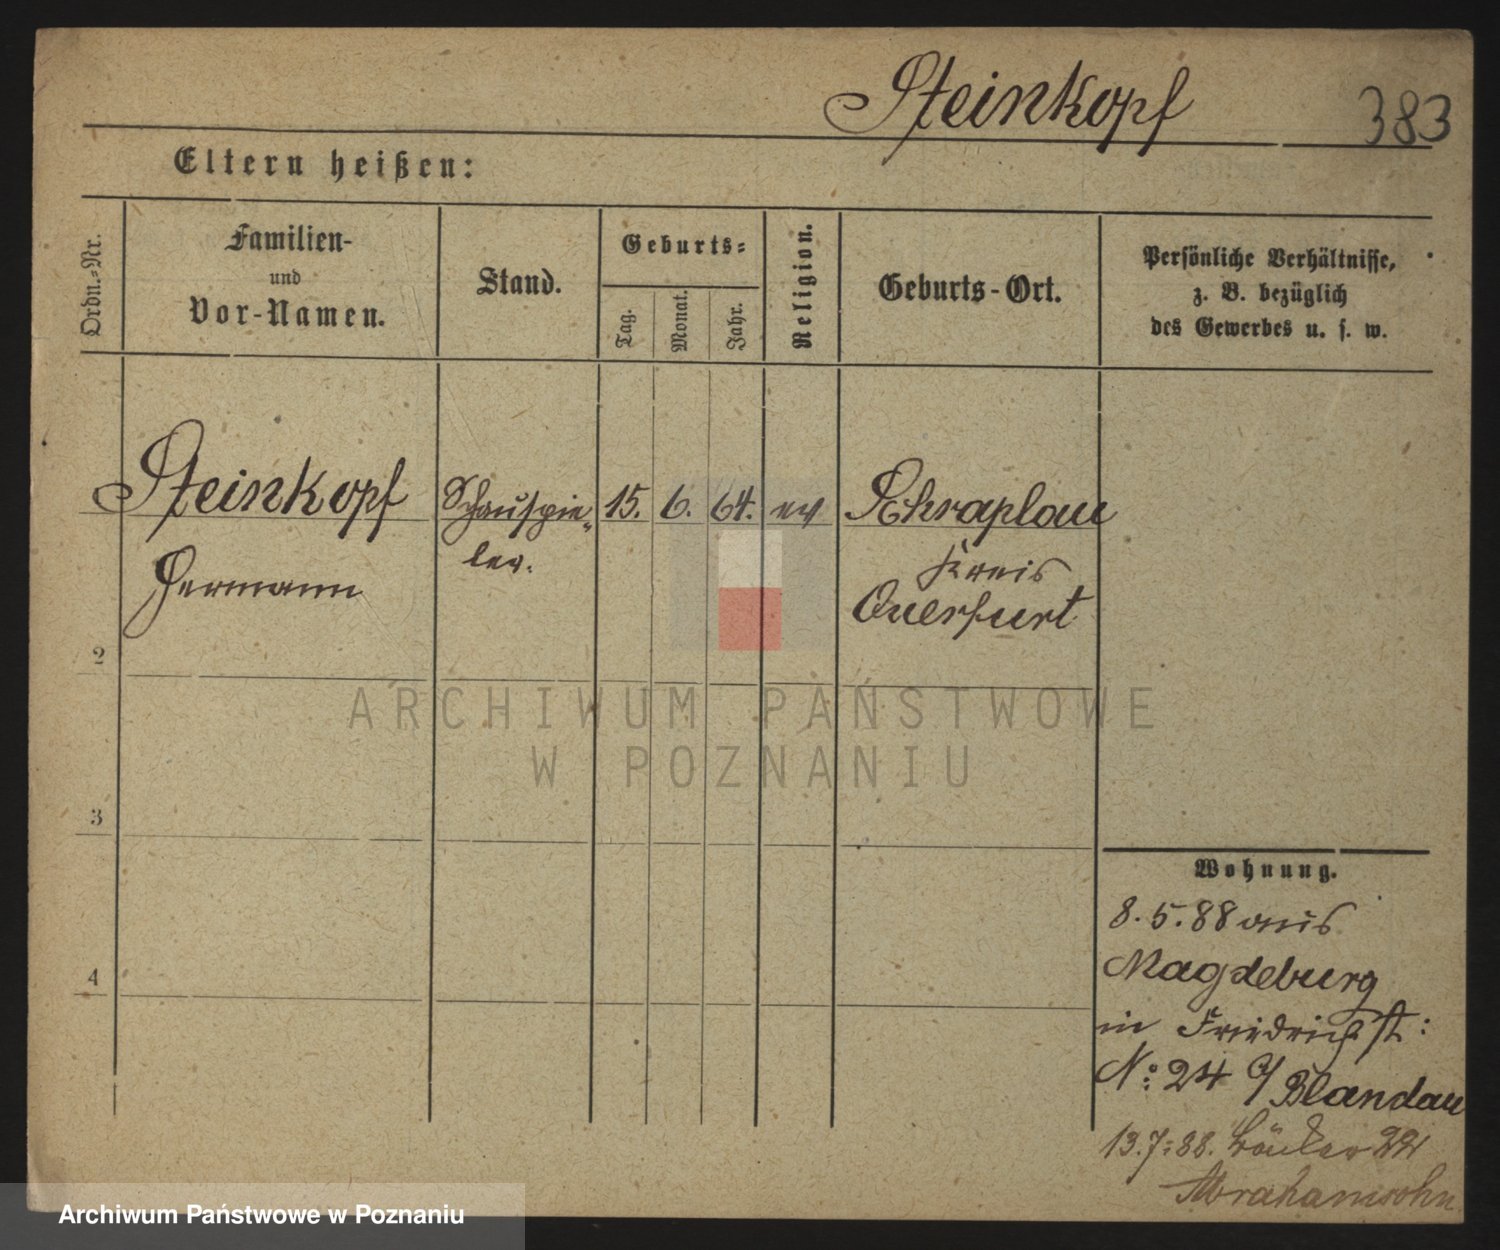 Steinkopf 383
Eltern heißen:
Ordn.-Nr.
Familien-
und
Vor-Namen.
Stand.
Geburts-
Tag.
Monat.
Jahr.
Religion.
Geburts-Ort.
Persönliche Verhältnisse,
z. B. bezüglich
des Gewerbes u. s. w.
Steinkopf Schauspie- 15. 6. 64. ev Schraplau
ler. Kreis
Hermann Querfurt
2
ARCHIWUM PAŃSTWOWE
W POZNANIU
3
4
Wohnung.
8.5.88 aus
Magdeburg
in Friedrichst:
No: 24 b/ Blandau
13.7.88. Bäcker 22
Abrahamsohn
Archiwum Państwowe w Poznaniu